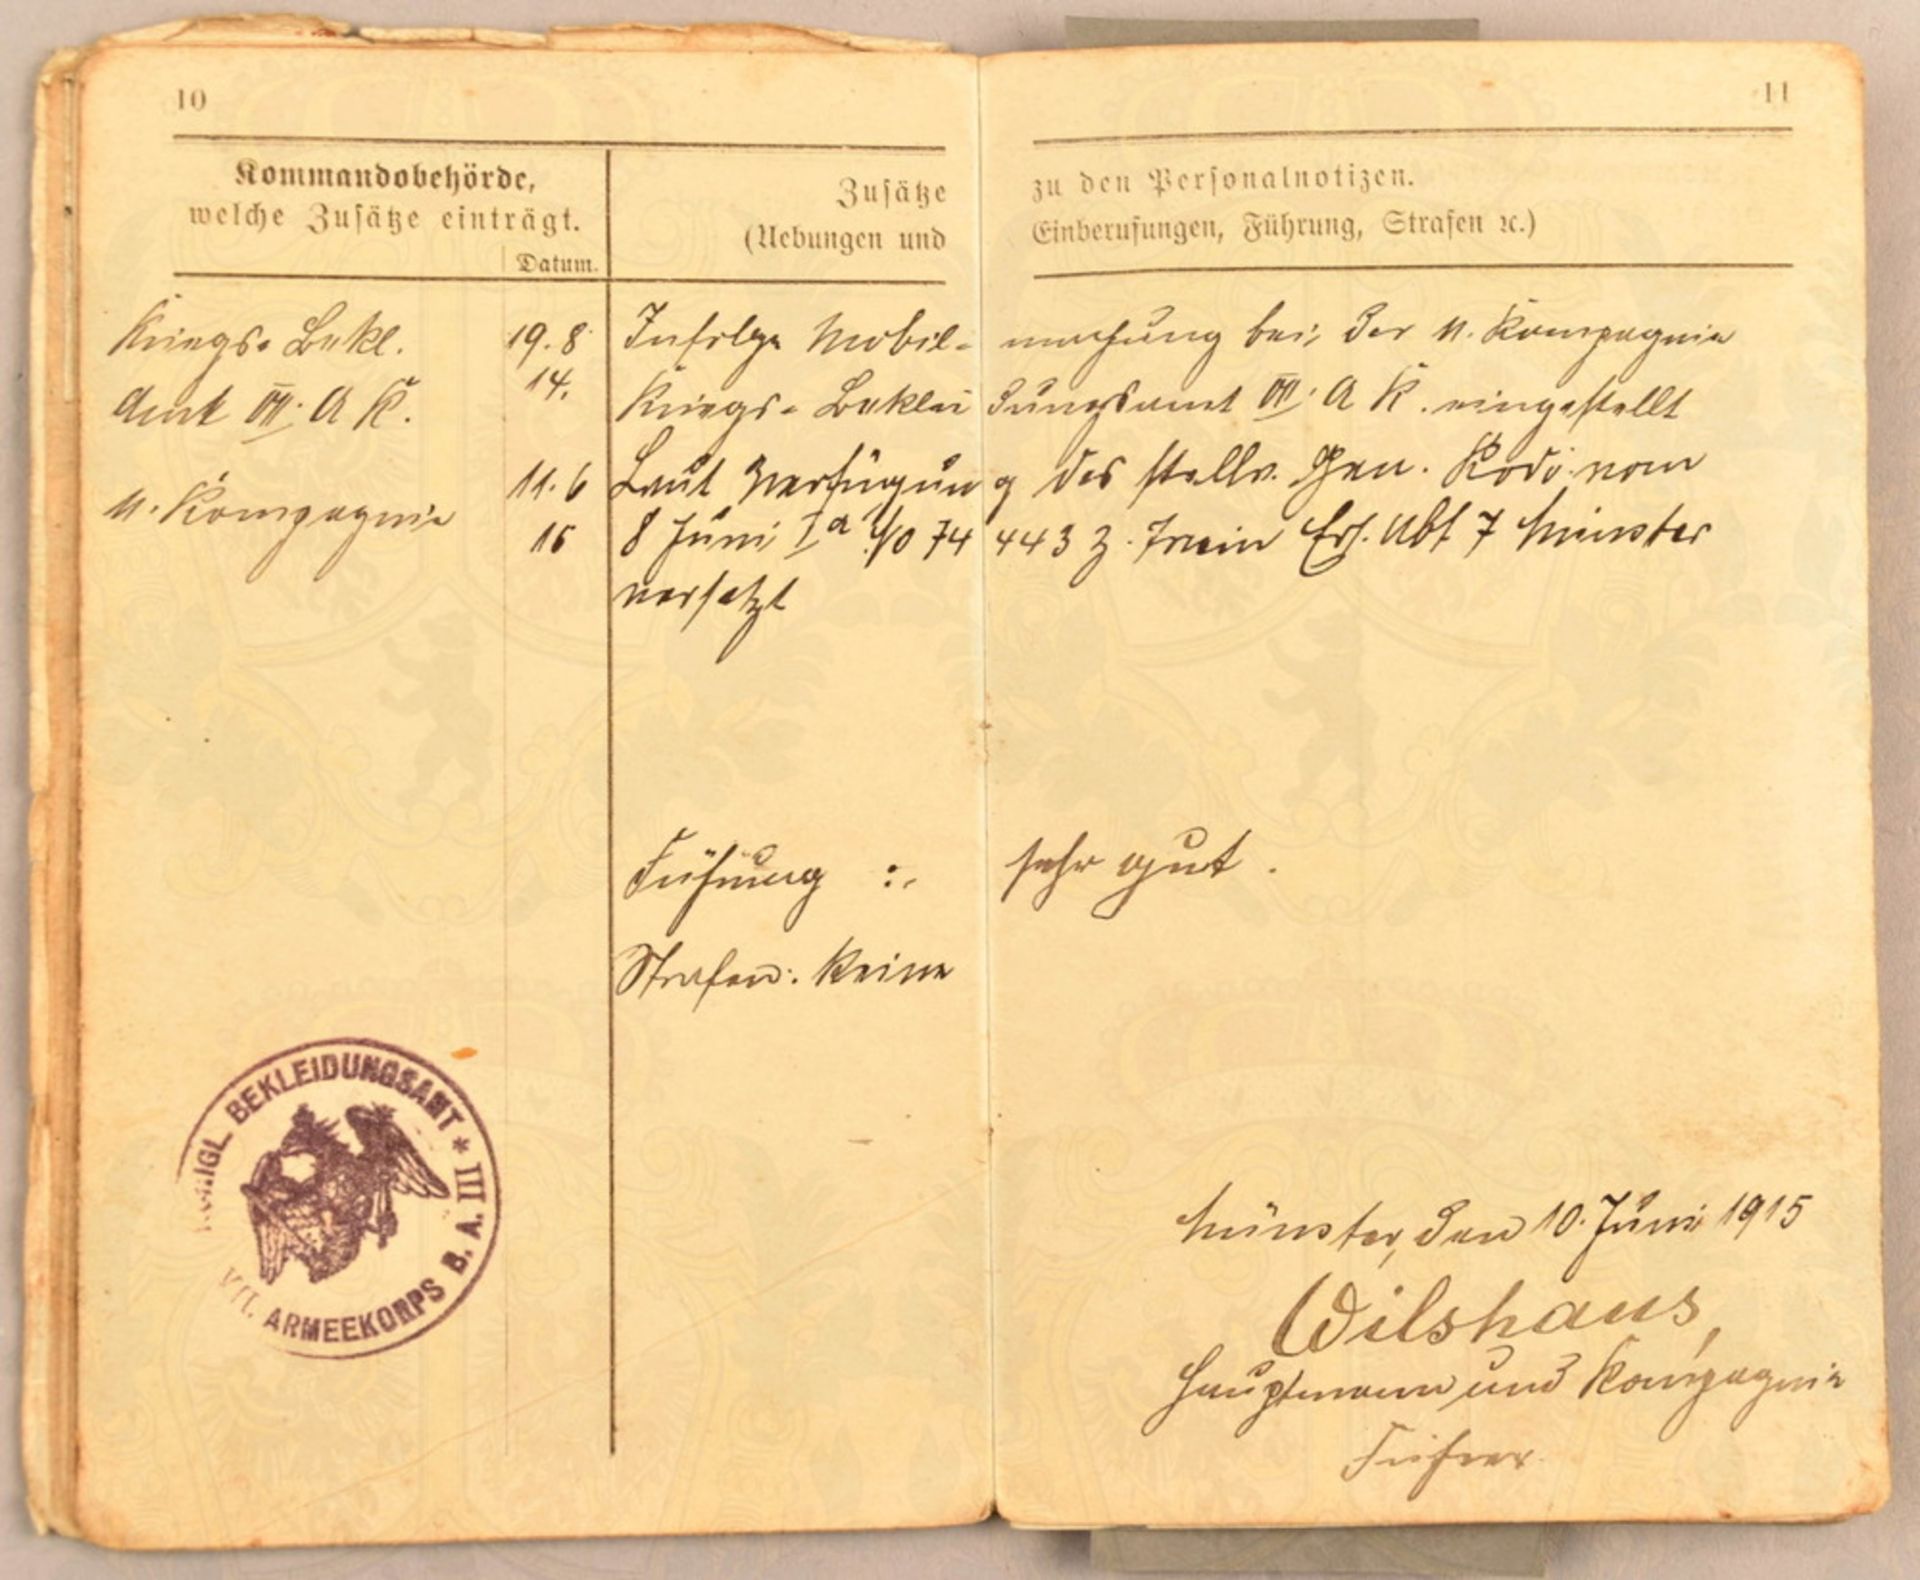 10
Kommandobehörde,
welche Zusätze einträgt.
Datum.
Zusätze
(Uebungen und
11
zu den Personalnotizen.
Einberufungen, Führung, Strafen ꝛc.)
Kriegs-Bekl. 19.8 Infolge Mobil- machung bei der II. Kompagnie
Amt VII. A K. 14. Kriegs-Beklei dungsamt VII. A K. eingestellt
11.6 Laut Verfügun g des stellv. Gen. Kodo. vom
II. Kompagnie
15 8 Juni Ia No 74 443 z. Train Ers. Abt 7 Münster
versetzt
Führung : sehr gut.
Strafen: Keine
KÖNIGL. BEKLEIDUNGSAMT * III B. A. VII. ARMEEKORPS
Münster, den 10. Juni 1915
Wilshaus,
Hauptmann und Kompagnie
Führer